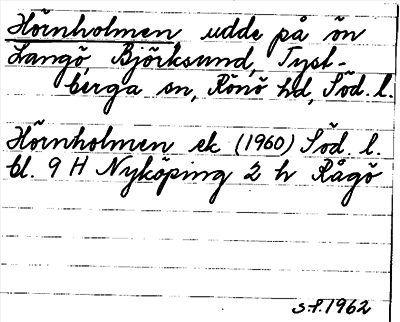 Hörnholmen udde på ön
Långö, Björksund, Tyst-
berga sn, Rönö hd, Söd. l.
Hörnholmen ek (1960) Söd. l.
bl. 9 H Nyköping 2 h Rågö
s.f. 1962